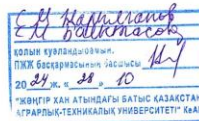 Е.М Байтасов
қолын куәландырамын.
ПЖЖ басқармасының басшысы
20 24 ж. « 28 » 10
"ЖӘҢГІР ХАН АТЫНДАҒЫ БАТЫС ҚАЗАҚСТАН
АГРАРЛЫҚ-ТЕХНИКАЛЫҚ УНИВЕРСИТЕТІ" КеАҚ